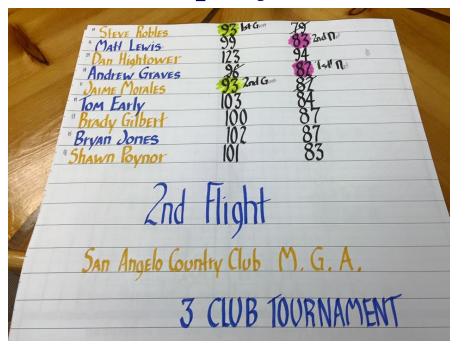 Steve Robles 93 1st G 79
Matt Lewis 99 83 2nd N
Dan Hightower 123 94
Andrew Graves 96 87 1st N
Jaime Morales 93 2nd G 82
Tom Early 103 84
Brady Gilbert 100 87
Bryan Jones 102 87
Shawn Poynor 101 83
2nd Flight
San Angelo Country Club M. G. A.
3 CLUB TOURNAMENT